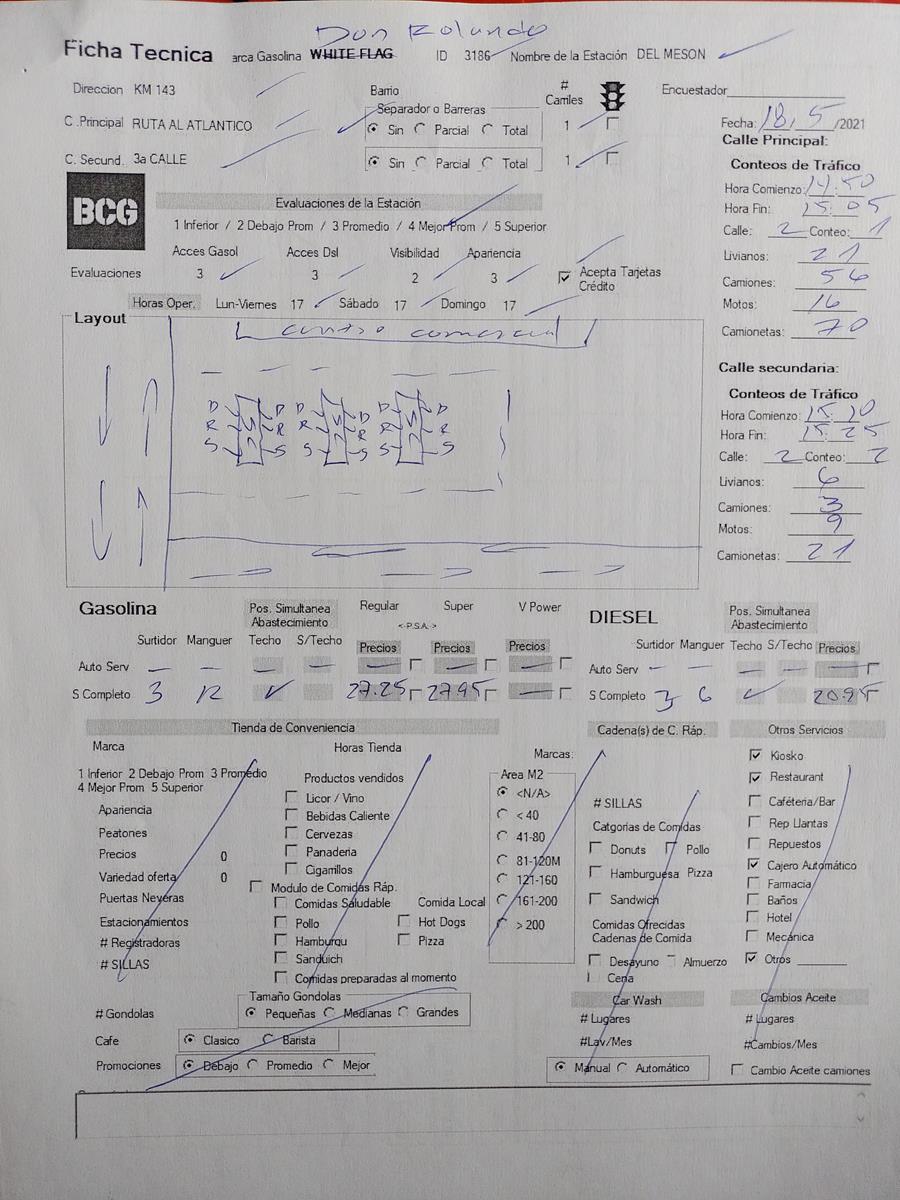 Don Rolando
Ficha Tecnica arca Gasolina WHITE FLAG ID 3186 Nombre de la Estación DEL MESON
Direccion KM 143 Barrio # Carriles Encuestador
Separador o Barreras
C .Principal RUTA AL ATLANTICO Sin Parcial Total 1 Fecha: 18, 5 /2021
Calle Principal:
C. Secund. 3a CALLE Sin Parcial Total 1
Conteos de Tráfico
BCG
Hora Comienzo: 14:50
Evaluaciones de la Estación Hora Fin: 15:05
1 Inferior / 2 Debajo Prom / 3 Promedio / 4 Mejor Prom / 5 Superior Calle: 2 Conteo: 1
Acces Gasol Acces Dsl Visibilidad Apariencia Livianos: 21
Evaluaciones 3 3 2 3 Acepta Tarjetas Crédito Camiones: 56
Horas Oper. Lun-Viernes 17 Sábado 17 Domingo 17 Motos: 16
Layout Camionetas: 70
centro comercial
Calle secundaria:
Conteos de Tráfico
D D D D D D Hora Comienzo: 15:10
R R R R R R Hora Fin: 15:25
S S S S S S Calle: 2 Conteo: 2
Livianos: 6
Camiones: 3
Motos: 9
Camionetas: 21
Gasolina Pos. Simultanea Abastecimiento Regular Super V Power DIESEL Pos. Simultanea Abastecimiento
<-P.S.A.->
Surtidor Manguer Techo S/Techo Precios Precios Precios Surtidor Manguer Techo S/Techo Precios
Auto Serv — — — — — — — Auto Serv — — — — —
S Completo 3 12 ✓ 27.25 27.95 — S Completo 3 6 ✓ 20.95
Tienda de Conveniencia Cadena(s) de C. Ráp. Otros Servicios
Marca Horas Tienda Marcas: Kiosko
1 Inferior 2 Debajo Prom 3 Promedio Productos vendidos Area M2 Restaurant
4 Mejor Prom 5 Superior Licor / Vino <N/A> # SILLAS Caféteria/Bar
Apariencia Bebidas Caliente < 40 Catgorias de Comidas Rep Llantas
Peatones Cervezas 41-80 Donuts Pollo Repuestos
Precios 0 Panaderia 81-120M Hamburguesa Pizza Cajero Automático
Variedad oferta 0 Cigarrillos 121-160 Farmacia
Puertas Neveras Modulo de Comidas Ráp. 161-200 Sandwich Baños
Estacionamientos Comidas Saludable Comida Local > 200 Comidas Ofrecidas Hotel
# Registradoras Pollo Hot Dogs Cadenas de Comida Mecánica
# SILLAS Hamburgu Pizza Desayuno Almuerzo Otros
Sanduich Cena
Comidas preparadas al momento
Tamaño Gondolas Car Wash Cambios Aceite
# Gondolas Pequeñas Medianas Grandes # Lugares # Lugares
Cafe Clasico Barista #Lav/Mes #Cambios/Mes
Promociones Debajo Promedio Mejor Manual Automático Cambio Aceite camiones